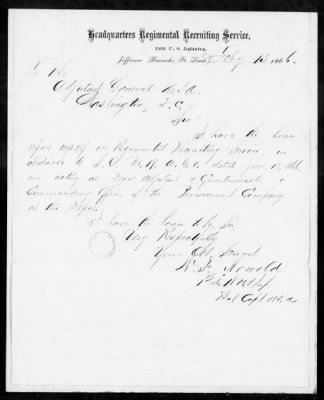 Headquarters Regimental Recruiting Service,
U. S. Infantry,
Jefferson Barracks,
To the
Adjutant General U.S.A.
Washington, D.C.
Sir:
I have the honor
report myself on Regimental Recruiting Service, in
obedience to S. O. No. A. G. O. dated
am acting as Depot Adjutant & Quartermaster &
Commanding Officer of the Permanent Company
at this Depot.
I have the honor to be, Sir,
Very Respectfully
Your Obt. Servant
W. F. Arnold